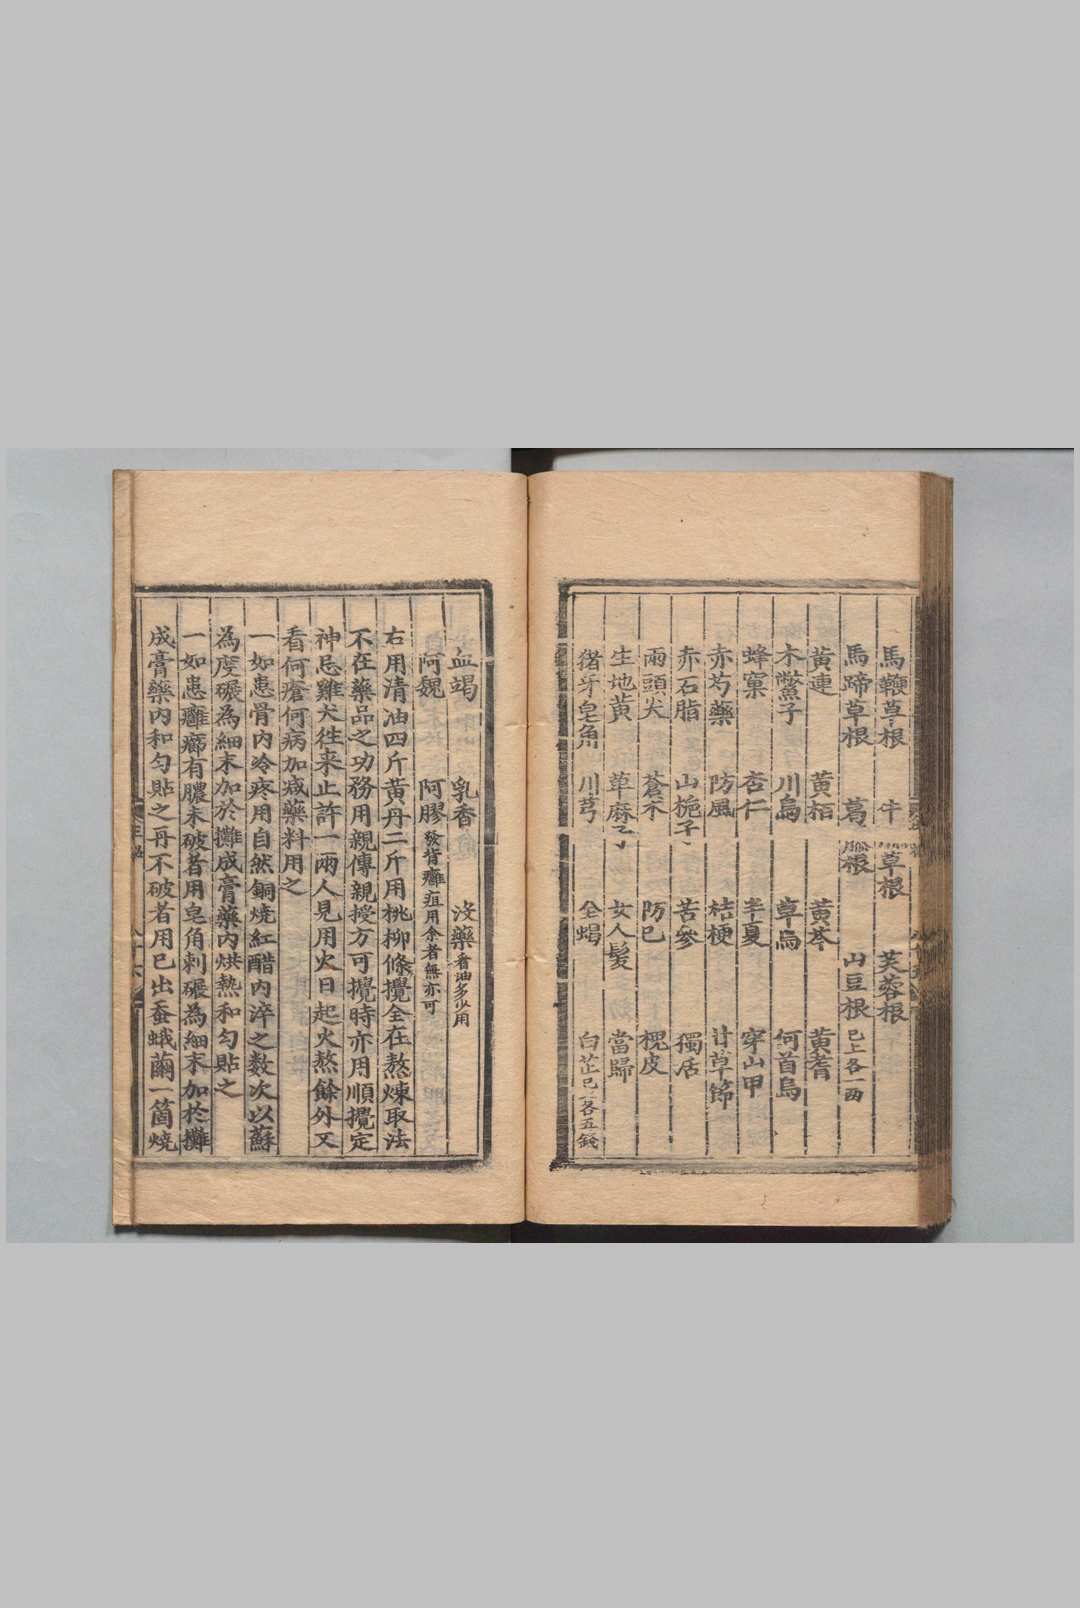 馬鞭草根 牛 草根 芙蓉根
馬蹄草根 葛根 山豆根 已上各一两
黃連 黃栢 黃芩 黃耆
木鱉子 川烏 草烏 何首烏
蜂窠 杏仁 半夏 穿山甲
赤芍藥 防風 桔梗 甘草節
赤石脂 山梔子 苦參 獨活
兩頭尖 蒼朮 防已 槐皮
生地黃 草麻子 女人髮 當歸
猪牙皂角 川芎 全蝎 白芷已上各五錢
血竭 乳香 沒藥看油多少用
阿魏 阿膠發背癰疽用余者無亦可
右用清油四斤黃丹二斤用桃柳條攪全在熬煉取法
不在藥品之功務用親傳親授方可攪時亦用順攪定
神忌雞犬徃来止許一兩人見用火日起火熬餘外又
看何瘡何病加减藥料用之
一如患骨内冷疼用自然銅燒紅醋内淬之数次以蘇
為度碾為細末加於攤成膏藥内烘熱和勻貼之
一如患癰癤有膿未破者用皂角刺碾為細末加於攤
成膏藥内和勻貼之再不破者用已出蚕蛾繭一箇燒